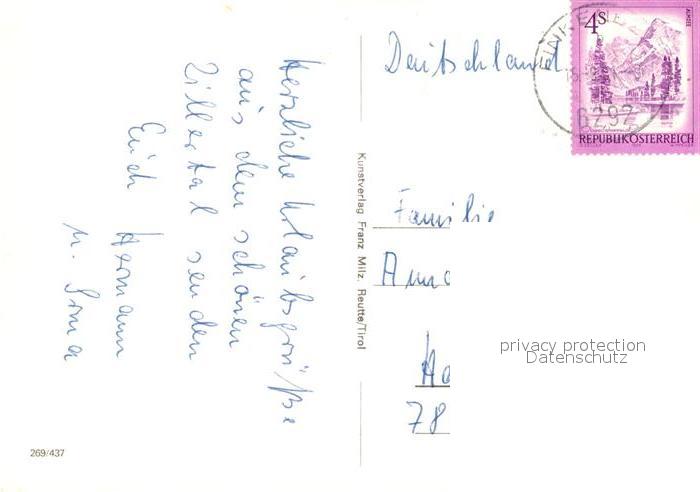 Herzliche Urlaubsgrüße
aus dem schönen
Zillertal senden
Euch Hermann
u. Irma
Kunstverlag Franz Milz, Reutte/Tirol
269/437
Deutschland
4S
ALMSEE
6292
REPUBLIK ÖSTERREICH
Familie
78
privacy protection
Datenschutz